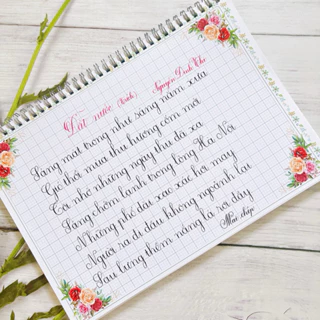 Đất nước (trích) Nguyễn Đình Thi
Sáng mát trong như sáng năm xưa
Gió thổi mùa thu hương cốm mới
Tôi nhớ những ngày thu đã xa
Sáng chớm lạnh trong lòng Hà Nội
Những phố dài xao xác hơi may
Người ra đi đầu không ngoảnh lại
Sau lưng thềm nắng lá rơi đầy